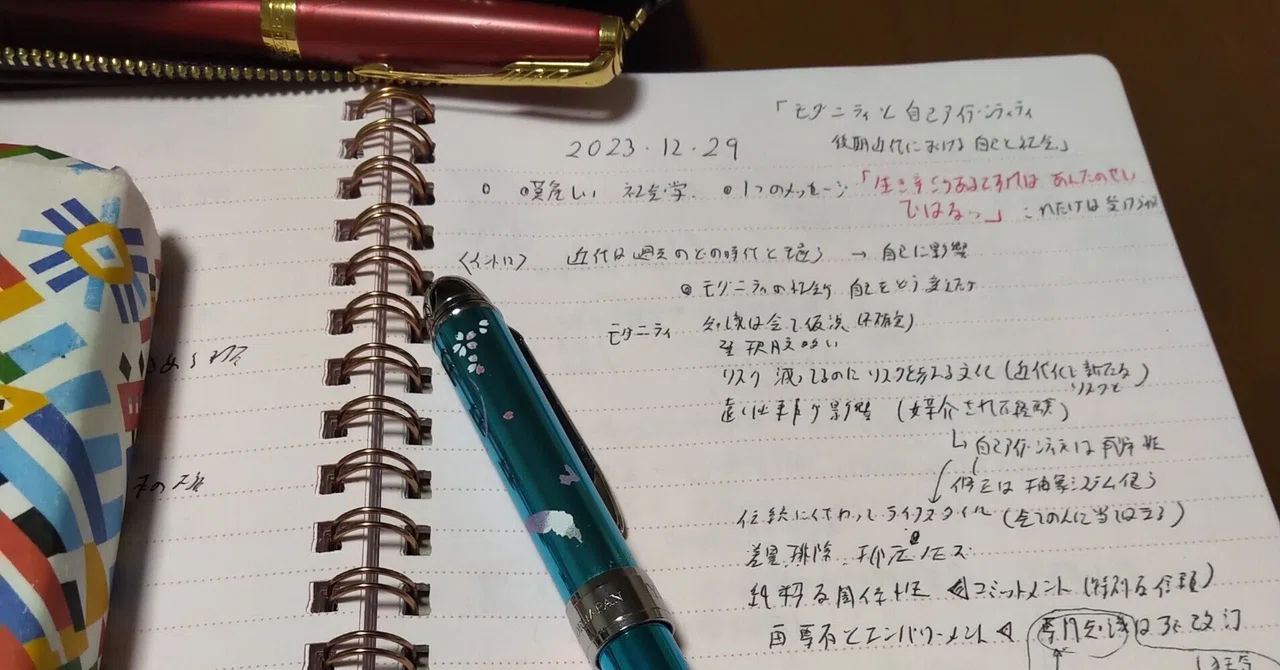 「モダニティと自己アイデンティティ
後期近代における自己と社会」
2023.12.29
難しい 社会学. 1つのメッセージ「生きづらさは あんたのせい
ではない」 これだけは
〈イントロ〉 近代は過去のどの時代と違う → 自己に影響
モダニティの社会が 自己をどう変えたか
モダニティ 知識は全て仮説 (不確定)
リスク 減ってるのに リスクを考える文化 (近代化と新たな
リスクと)
遠い出来事が影響 (媒介された経験)
自己アイデンティティは再帰性
修正は 抽象システム使う
伝統に代わってライフスタイル (全ての人に当てはまる)
差異、排除、
純粋な関係性 コミットメント (特別な信頼)
再専有とエンパワーメント 専門知識は 改訂
JAPAN